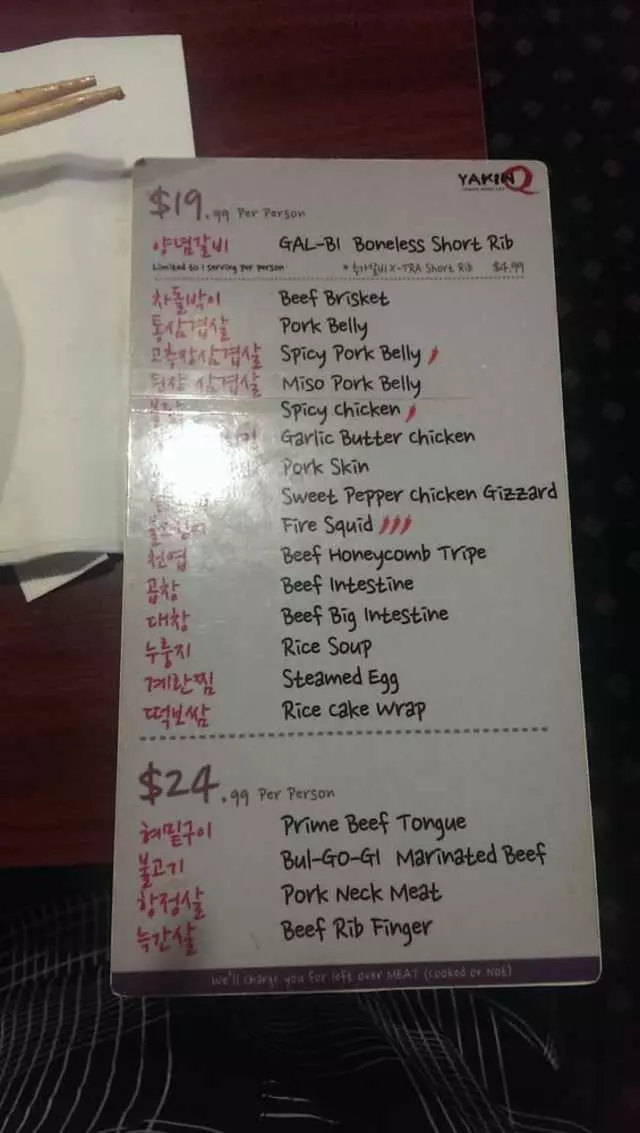 YAKINQ
$19.99 Per Person
양념갈비 GAL-BI Boneless Short Rib
Limited to 1 serving per person * 추가갈비 X-TRA Short Rib $4.99
차돌박이 Beef Brisket
통삼겹살 Pork Belly
고추장삼겹살 Spicy Pork Belly
된장 삼겹살 Miso Pork Belly
불닭 Spicy Chicken
Garlic Butter Chicken
Pork Skin
Sweet Pepper Chicken Gizzard
불오징어 Fire Squid
천엽 Beef Honeycomb Tripe
곱창 Beef Intestine
대창 Beef Big Intestine
누룽지 Rice Soup
계란찜 Steamed Egg
떡보쌈 Rice Cake Wrap
$24.99 Per Person
혀밑구이 Prime Beef Tongue
불고기 Bul-GO-GI Marinated Beef
항정살 Pork Neck Meat
늑간살 Beef Rib Finger
We'll charge you for left over MEAT (Cooked or Not)